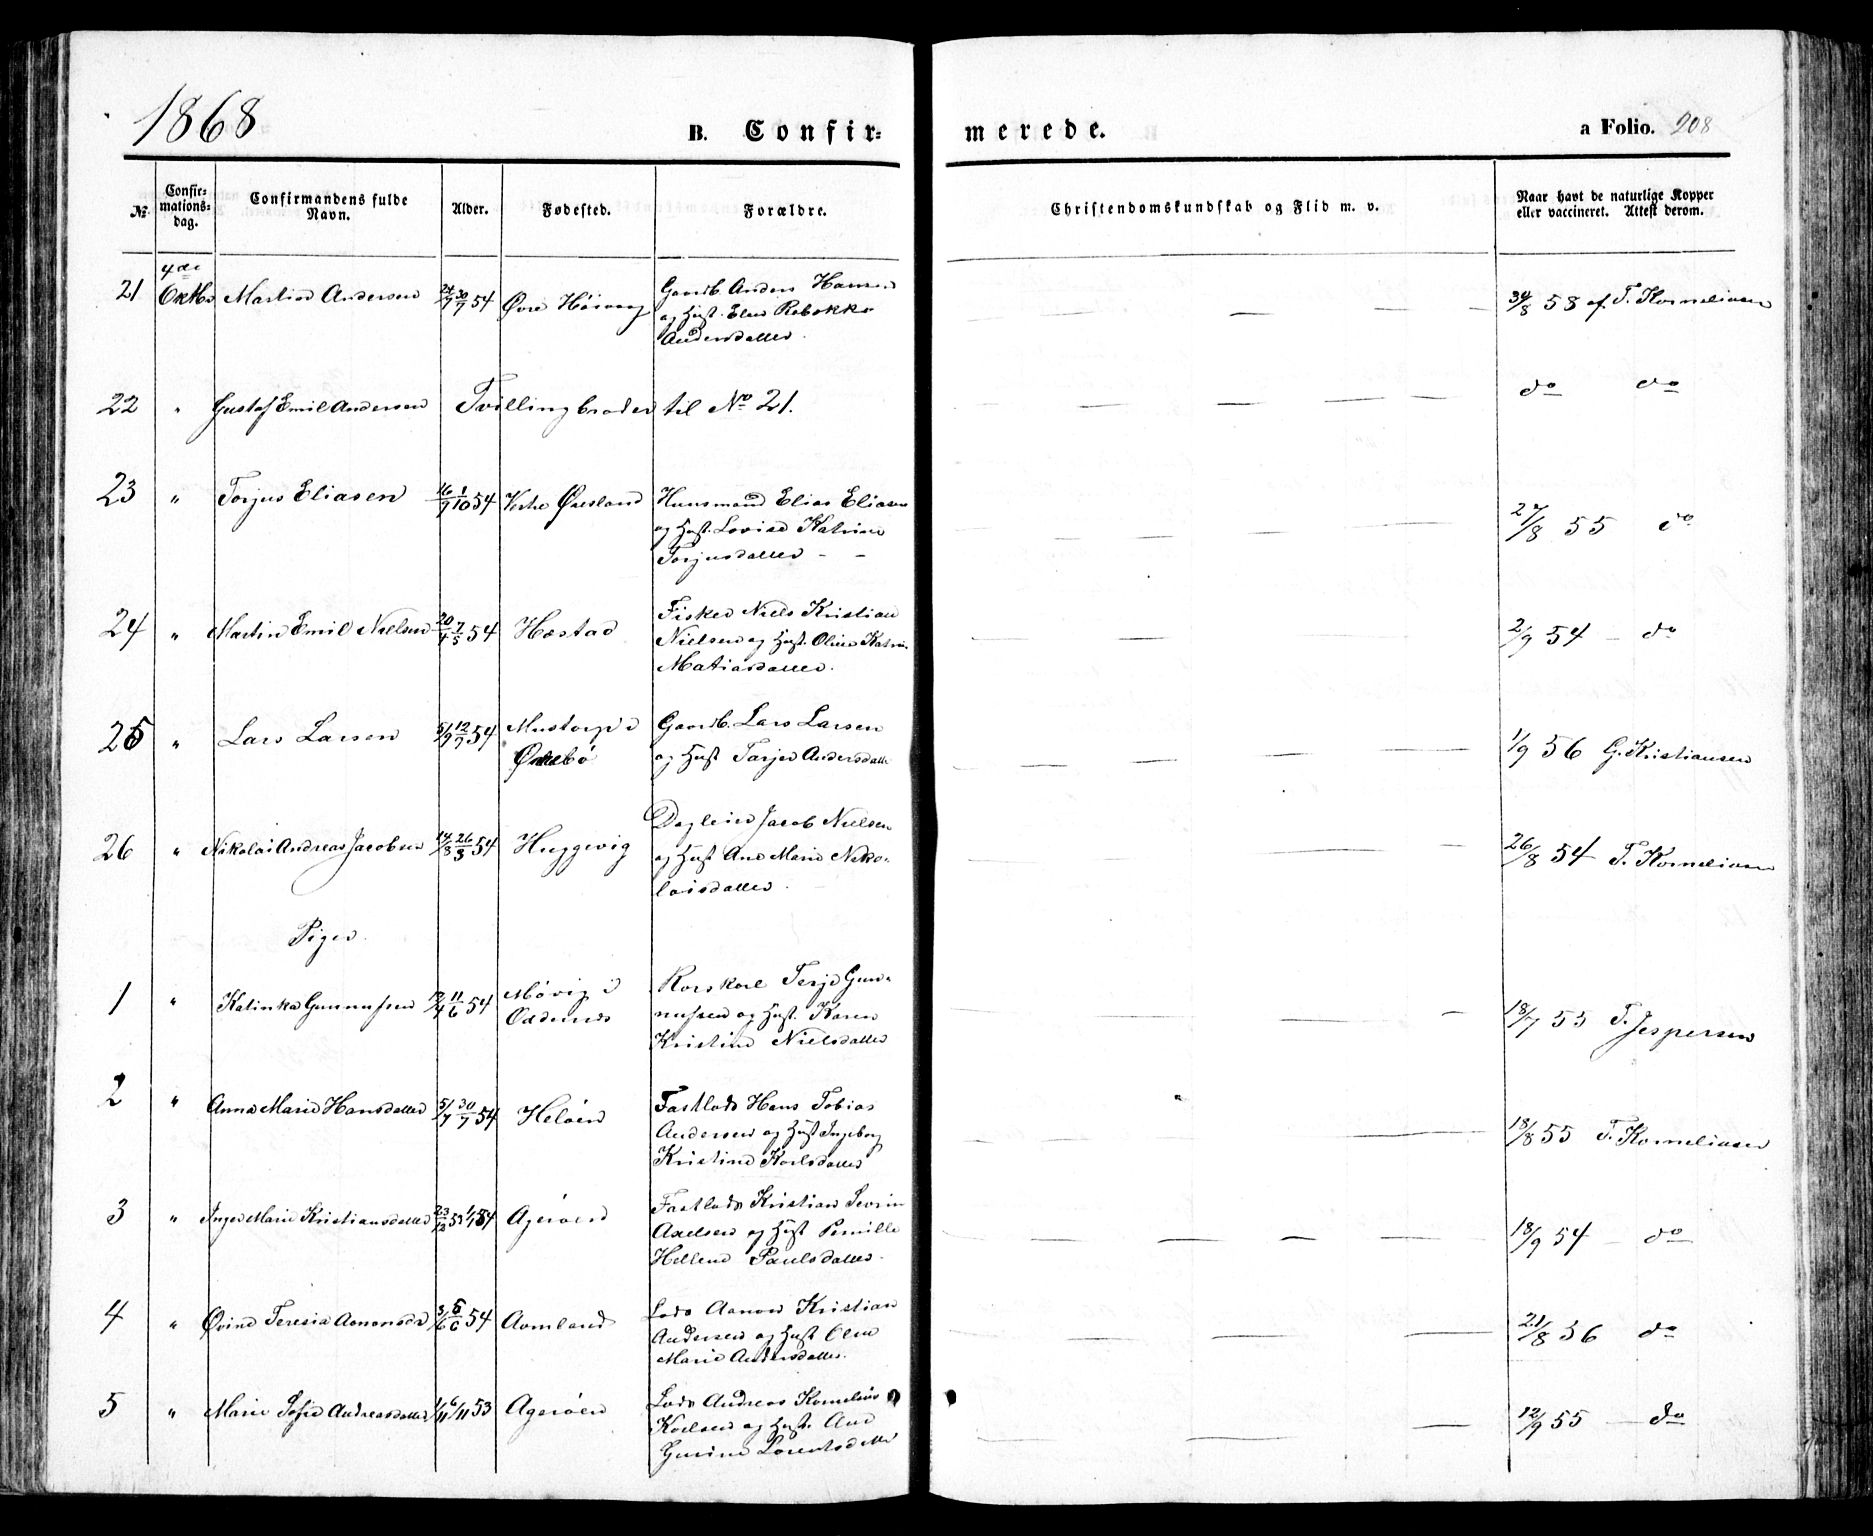 1868
B. Confir=
merede.
a Folio. 208
№
Confir=
mations=
dag.
Confirmandens fulde
Navn.
Alder.
Fødested.
Forældre.
Christendomskundskab og Flid m. v.
Naar havt de naturlige Kopper
eller vaccineret. Attest derom.
21 4de Oktbr Martin Andersen 54 Øvre Høivaag Gaardb. Anders Hansen
og Hust. Elen Rebekka
Andersdatter.
58 af T. Korneliusen
22 " Gustaf Emil Andersen Tvillingbroder til No 21.
do do
23 " Torjus Eliasen 16/9 1/10 54 Vestre Øresland Huusmand Elias Eliasen
og Hust. Lovise Katrine
Torjusdatter - -
27/8 55 do
24 " Martin Emil Nielsen 20/4 7/5 54 Hæstad Fisker Niels Kristian
Nielsen og Hust. Oline Katrin.
Matiasdatter.
2/9 54 - do
25 " Lars Larsen 5/9 54 Mustorp i
Gaardb. Lars Larsen
og Hust Tarjer Andersdatter
1/9 56 G. Kristiansen
26 " Nikolai Andreas Jacobsen 54 Huggevig Dagleier Jacob Nielsen
og Hust Ane Marie Niko-
laisdatter.
26/8 54 T. Korneliusen
Piger.
1 " Katinka Gunnufsen 11/6 54 Møvig i
Oddernes
Korskarl Terje Gun-
nufsen og Hust. Karen
Kristine Nielsdatter
18/7 55 T. Jespersen
2 " Anna Marie Hansdatter 5/7 30/7 54 Heløen Fastlods Hans Tobias
Andersen og Hust Ingeborg
Kristine Karlsdatter
18/8 55 T. Korneliusen
3 " Inger Marie Kristiansdatter 23/12 53 1/1 54 Agerøen Fastlods Kristian Severin
Axelsen og Hust Pernille
Hellene Paulsdatter.
18/9 54 - do
4 " Øvine Teresia Aanonsdr 3/6 54 Aamland Lods Aanon Kristian
Andersen og Hust Olene
Marie Andersdatter.
21/8 56 do
5 " Marie Sofie Andreasdatter 1/11 6/11 53 Agerøen Lods Andreas Kornelius
og Hust. Ane
Gurine Lorentsdatter
12/9 55 - do